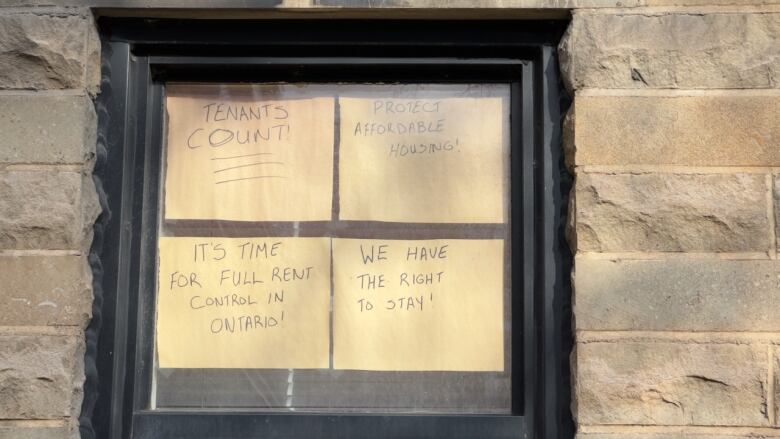 TENANTS
COUNT!
PROTECT
AFFORDABLE
HOUSING!
IT'S TIME
FOR FULL RENT
CONTROL IN
ONTARIO!
WE HAVE
THE RIGHT
TO STAY!